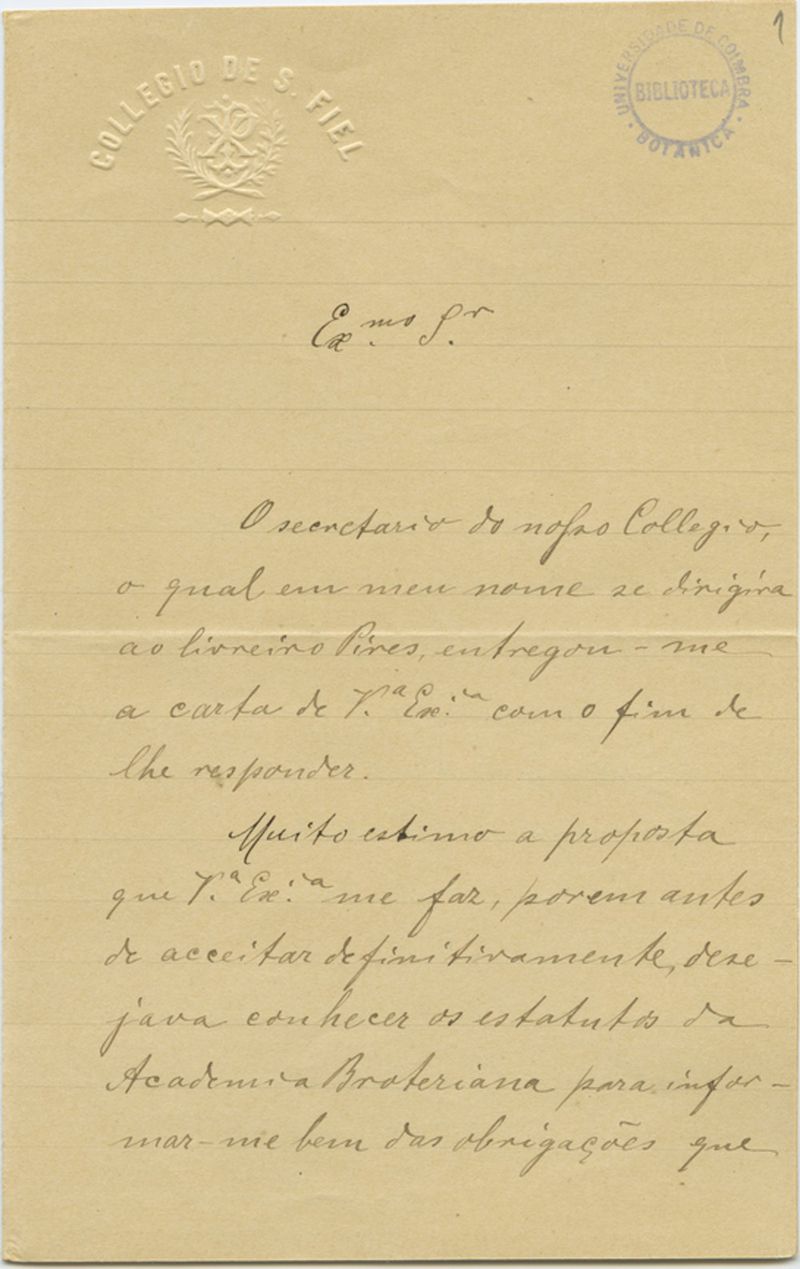 1
COLLEGIO DE S. FIEL
UNIVERSIDADE DE COIMBRA
BIBLIOTECA
BOTANICA
Ex.mo S.r
O secretario do nosso Collegio,
o qual em meu nome se dirigíra
ao livreiro Pires, entregou-me
a carta de V.ª Ex.ª com o fim de
lhe responder.
Muito estimo a proposta
que V.ª Ex.ª me faz, porem antes
de acceitar definitivamente, dese-
java conhecer os estatutos da
Academia Broteriana para infor-
mar-me bem das obrigações que